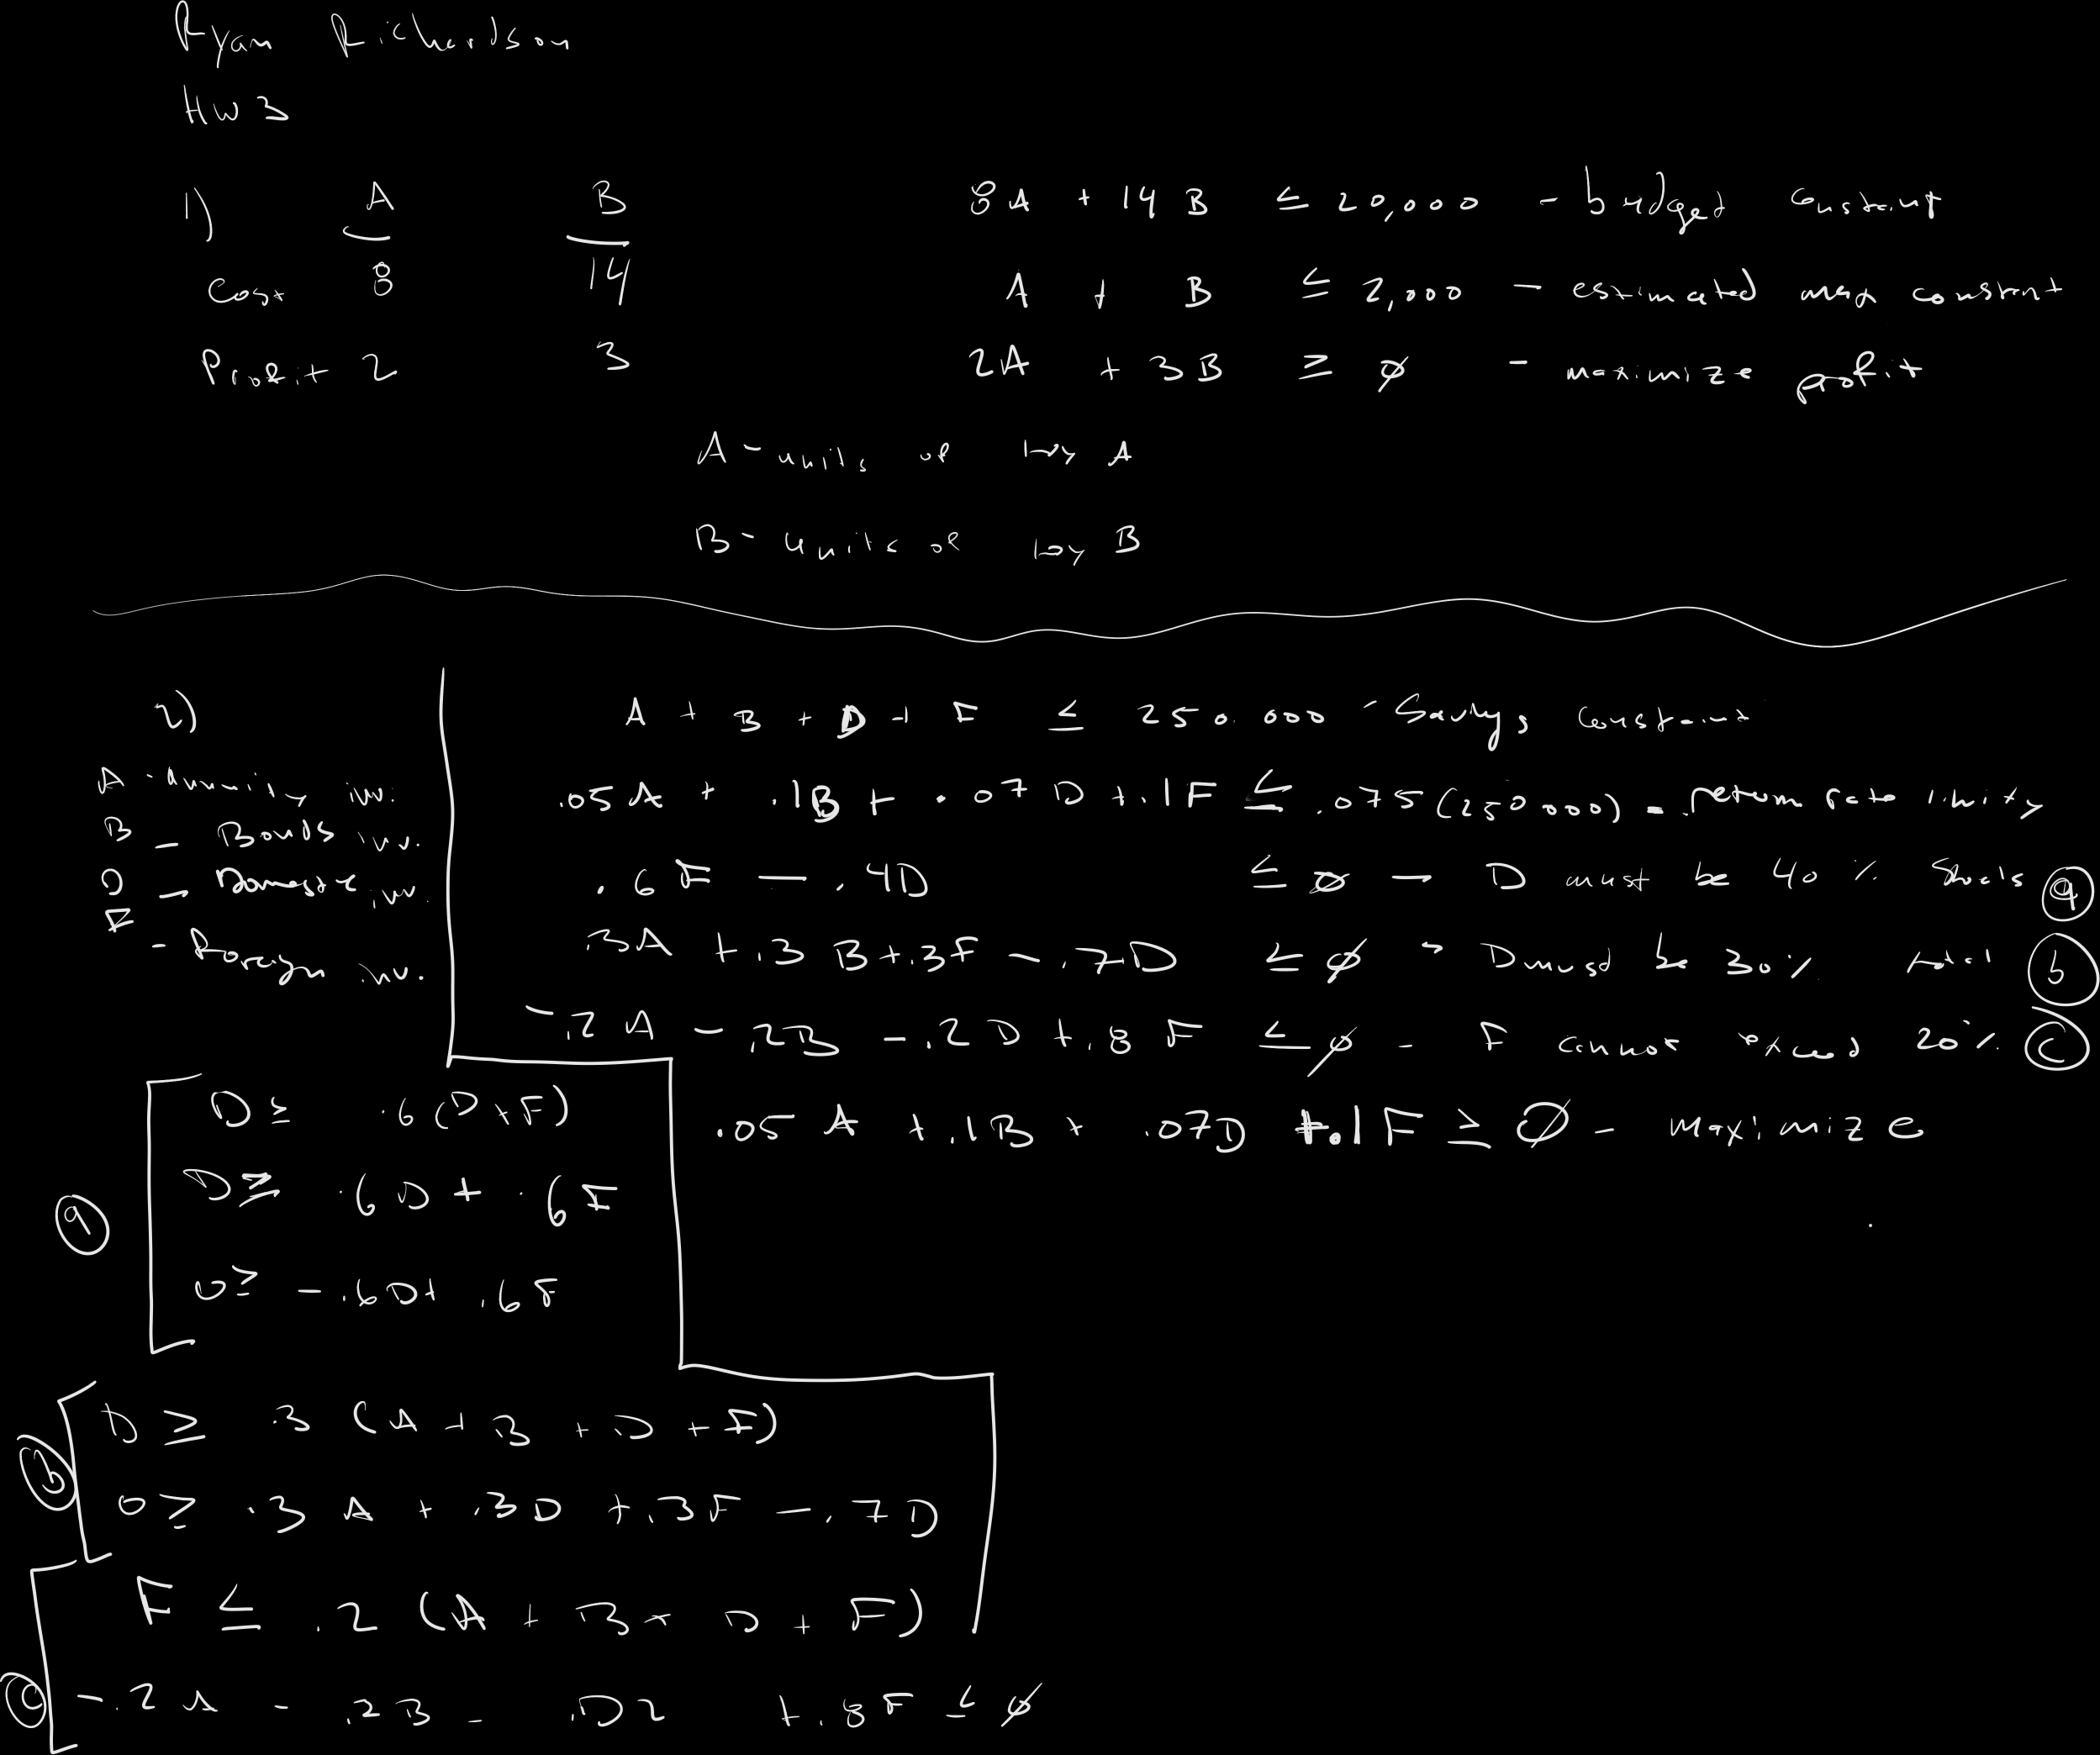 Ryan Richardson
HW 3
1) A B
Cost 8 14
Profit 2 3
8A + 14B ≤ 20,000 - budget constraint
A + B ≤ 2,000 - estimated max constraint
2A + 3B ≥ ∅ - maximize profit
A - units of toy A
B - units of toy B
2)
A - annuity inv.
B - Bonds inv.
D - Domestic inv.
F - Foreign inv.
A + B + D + F ≤ 250,000 - Savings constraint
.05A + .1B + .07D + .1F ≤ .075(250000) - return rate
.6F - .4D ≤ ∅ - D must be 40% (a)
.3A + .3B + .3F - .7D ≤ ∅ - D must be 30% total (b)
-.2A - .2B - .2D + .8F ≤ ∅ - F cannot exceed 20% (c)
.05A + .1B + .07D + .1F ≥ ∅ - maximize
(a)
D ≥ .6(D + F)
D ≥ .6D + .6F
0 ≥ -.6D + .6F
(b)
D ≥ .3(A + B + D + F)
0 ≥ .3A + .3D + .3F - .7D
(c)
F ≤ .2(A + B + D + F)
-.2A - .2B - .D2 + .8F ≤ ∅